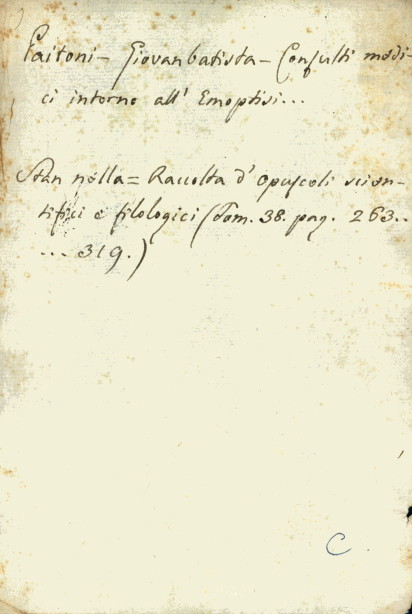 Paitoni - Giovanbatista - Consulti medi-
ci intorno all' Emoptisi...
Stan nella = Raccolta d' opuscoli scien-
tifici e filologici (Tom. 38. pag. 263...
... 319.)
C